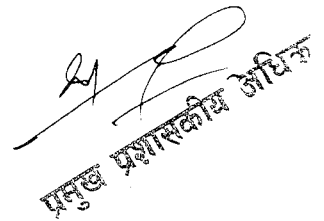 प्रमुख प्रशासकीय अधिक